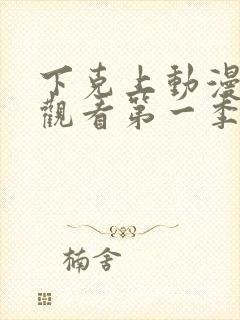 下克上動漫
觀看第一季
楠舍